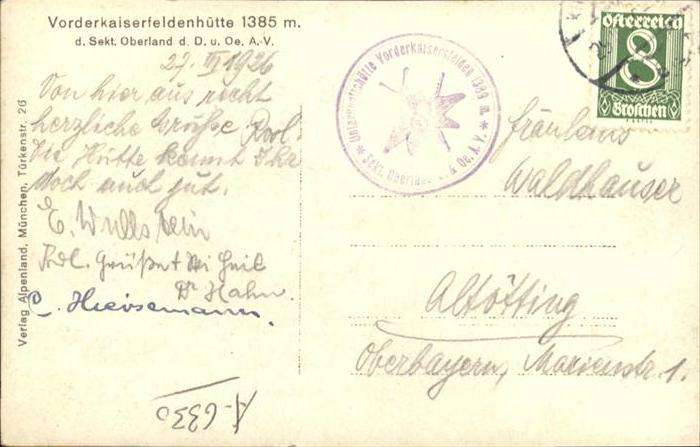 Vorderkaiserfeldenhütte 1385 m.
d. Sekt. Oberland d. D. u. Oe. A. V.
27. VI 1926
Von hier aus recht
herzliche Grüße
Die Hütte kennt
doch auch gut.
E. Wullstein
Grüße + Heil
Dr Hahn.
Verlag Alpenland, München, Türkenstr. 26
A-6330
Unterkunftshütte Vorderkaiserfelden 1389 m.
Sekt. Oberland & Oe. A. V.
Österreich
8
Groschen
Fräulein
Waldhauser
Altötting
Oberbayern, Marienstr. 1.